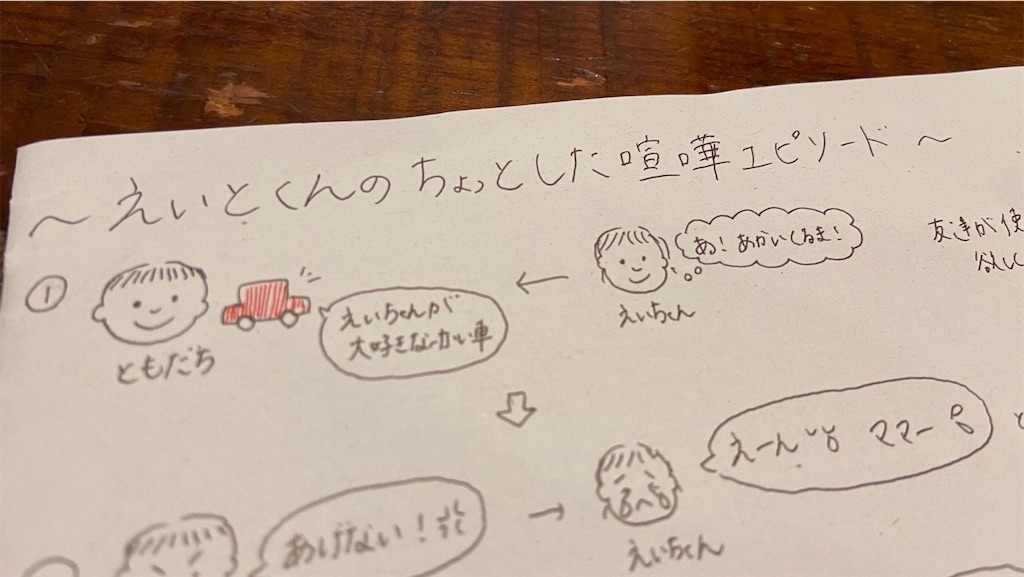 ～えいとくんのちょっとした喧嘩エピソード～
①
ともだち
えいちゃんが
大好きなあかい車
あ！あかいくるま！
えいちゃん
友達が使
欲し
えーん ママー
えいちゃん
あげない！